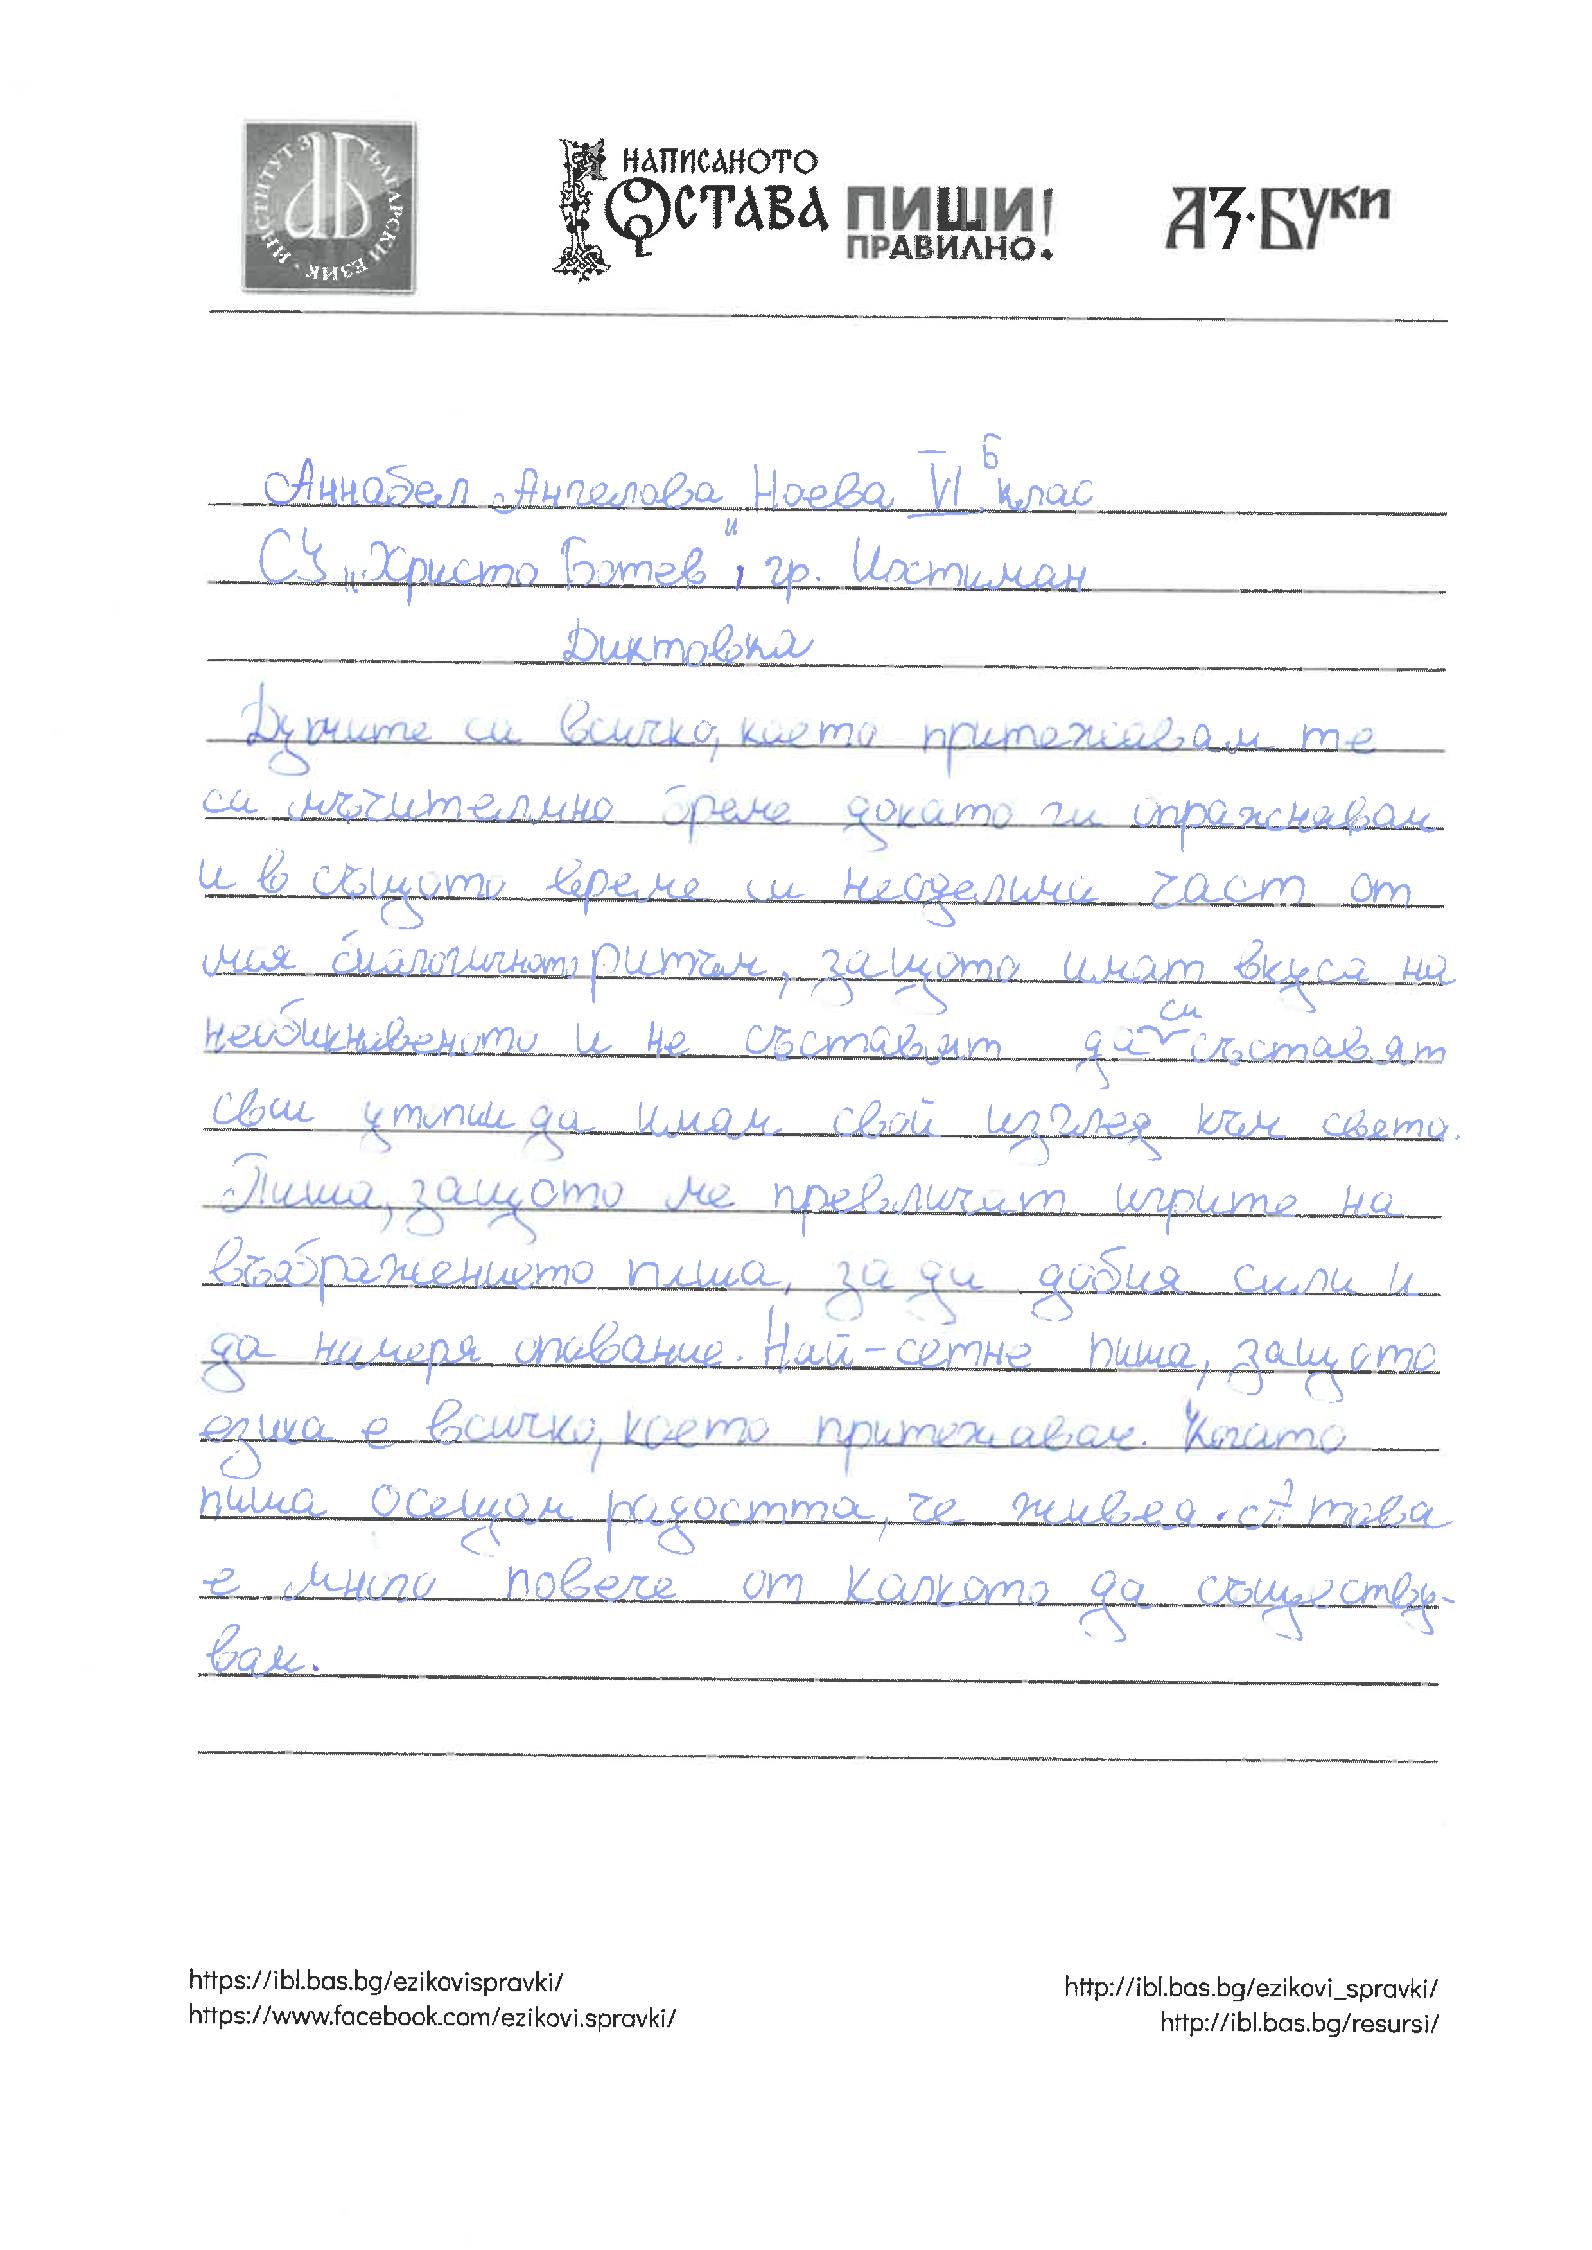 ИНСТИТУТ ЗА БЪЛГАРСКИ ЕЗИК
НАПИСАНОТО
ОСТАВА
ПИШИ!
ПРАВИЛНО.
АЗ·БУКИ
Аннабел Ангелова Ноева VI Б клас
СУ „Христо Ботев", гр. Ихтиман
Диктовка
Думите са всичко, което притежавам те
са мъчителмно бреме докато ги опражнавам
и в същото време са неоделима част от
мия биалогичното ритъм, защото имат вкуса на
необикновеното и не съставят да си съставят
свои утопии да имам свой изглед към света.
Пиша, защото ме превличат игрите на
въображението пиша, за да добия сили и
да намеря опование. Най-сетне пиша, защото
езика е всичко, което притежавам. Когато
пиша осещам радостта, че живея. А това
е много повече от калкото да съществу-
вам.
https://ibl.bas.bg/ezikovispravki/
https://www.facebook.com/ezikovi.spravki/
http://ibl.bas.bg/ezikovi_spravki/
http://ibl.bas.bg/resursi/